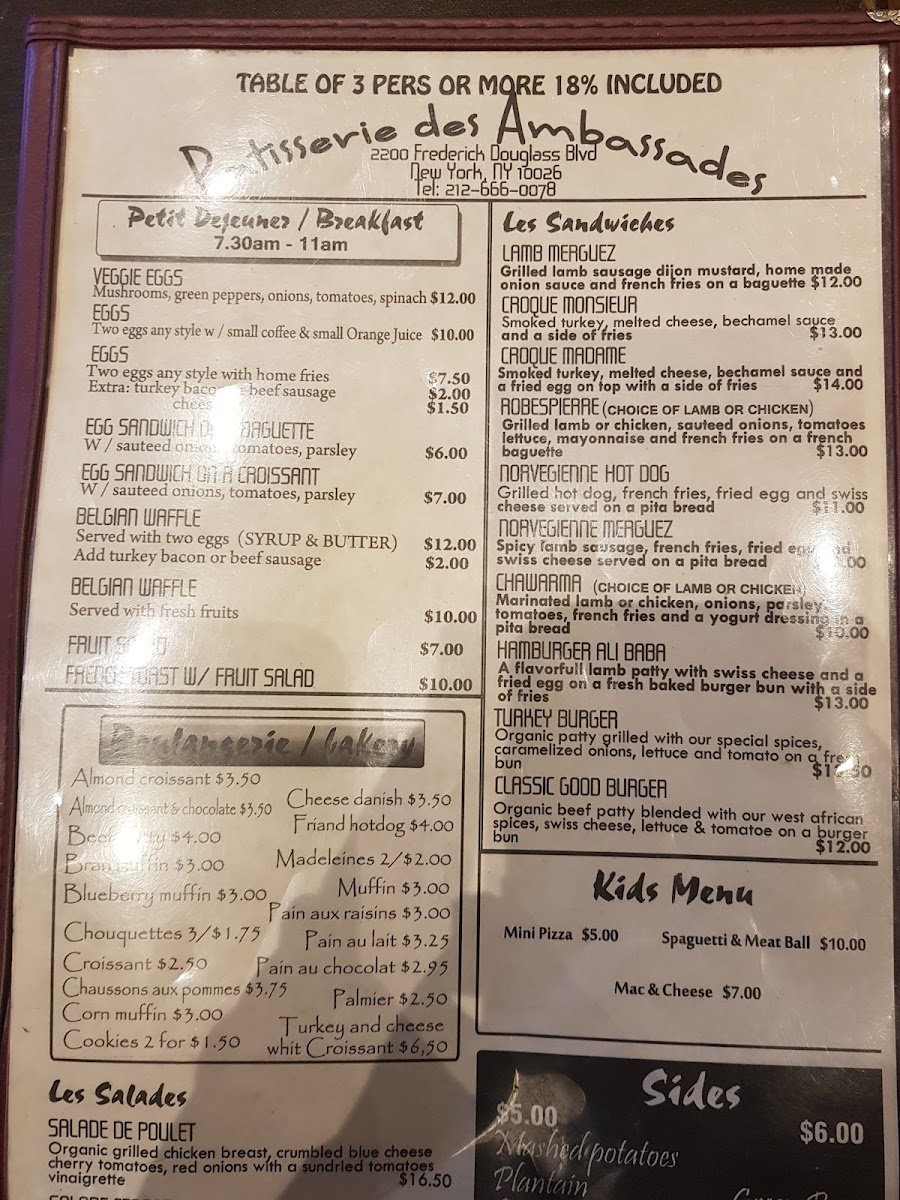 TABLE OF 3 PERS OR MORE 18% INCLUDED
Patisserie des Ambassades
2200 Frederick Douglass Blvd
New York, NY 10026
Tel: 212-666-0078
Petit Dejeuner / Breakfast
7.30am - 11am
VEGGIE EGGS
Mushrooms, green peppers, onions, tomatoes, spinach $12.00
EGGS
Two eggs any style w / small coffee & small Orange Juice $10.00
EGGS
Two eggs any style with home fries $7.50
Extra: turkey beef sausage $2.00
$1.50
EGG SANDWICH BAGUETTE
W / sauteed tomatoes, parsley $6.00
EGG SANDWICH ON A CROISSANT
W / sauteed onions, tomatoes, parsley $7.00
BELGIAN WAFFLE
Served with two eggs (SYRUP & BUTTER) $12.00
Add turkey bacon or beef sausage $2.00
BELGIAN WAFFLE
Served with fresh fruits $10.00
FRUIT $7.00
W/ FRUIT SALAD $10.00
Boulangerie / bakery
Almond croissant $3.50
Almond croissant & chocolate $3.50
$4.00
Bran muffin $3.00
Blueberry muffin $3.00
Chouquettes 3/$1.75
Croissant $2.50
Chaussons aux pommes $3.75
Corn muffin $3.00
Cookies 2 for $1.50
Cheese danish $3.50
Friand hotdog $4.00
Madeleines 2/$2.00
Muffin $3.00
Pain aux raisins $3.00
Pain au lait $3.25
Pain au chocolat $2.95
Palmier $2.50
Turkey and cheese
whit Croissant $6,50
Les Salades
SALADE DE POULET
Organic grilled chicken breast, crumbled blue cheese
cherry tomatoes, red onions with a sundrled tomatoes
vinaigrette $16.50
Les Sandwiches
LAMB MERGUEZ
Grilled lamb sausage dijon mustard, home made
onion sauce and french fries on a baguette $12.00
CROQUE MONSIEUR
Smoked turkey, melted cheese, bechamel sauce
and a side of fries $13.00
CROQUE MADAME
Smoked turkey, melted cheese, bechamel sauce and
a fried egg on top with a side of fries $14.00
ROBESPIERRE (CHOICE OF LAMB OR CHICKEN)
Grilled lamb or chicken, sauteed onions, tomatoes
lettuce, mayonnaise and french fries on a french
baguette $13.00
NORVEGIENNE HOT DOG
Grilled hot dog, french fries, fried egg and swiss
cheese served on a pita bread $11.00
NORVEGIENNE MERGUEZ
Spicy lamb sausage, french fries, fried egg and
swiss cheese served on a pita bread
CHAWARMA (CHOICE OF LAMB OR CHICKEN)
Marinated lamb or chicken, onions, parsley,
tomatoes, french fries and a yogurt dressing in a
pita bread $10.00
HAMBURGER ALI BABA
A flavorfull lamb patty with swiss cheese and a
fried egg on a fresh baked burger bun with a side
of fries $13.00
TURKEY BURGER
Organic patty grilled with our special spices,
caramelized onions, lettuce and tomato on a fresh
bun
CLASSIC GOOD BURGER
Organic beef patty blended with our west african
spices, swiss cheese, lettuce & tomatoe on a burger
bun $12.00
Kids Menu
Mini Pizza $5.00
Spaguetti & Meat Ball $10.00
Mac & Cheese $7.00
Sides
$5.00
Mashed potatoes
Plantain
$6.00